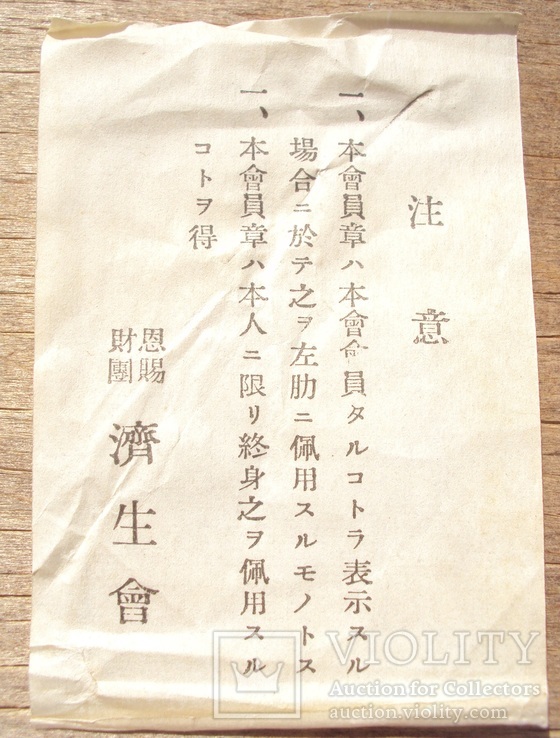 注意
一、本會員章ハ本會會員タルコトヲ表示スル
場合ニ於テ之ヲ左肋ニ佩用スルモノトス
一、本會員章ハ本人ニ限リ終身之ヲ佩用スル
コトヲ得
恩賜
財團
濟生會
VIOLITY
Auction for Collectors
auction.violity.com